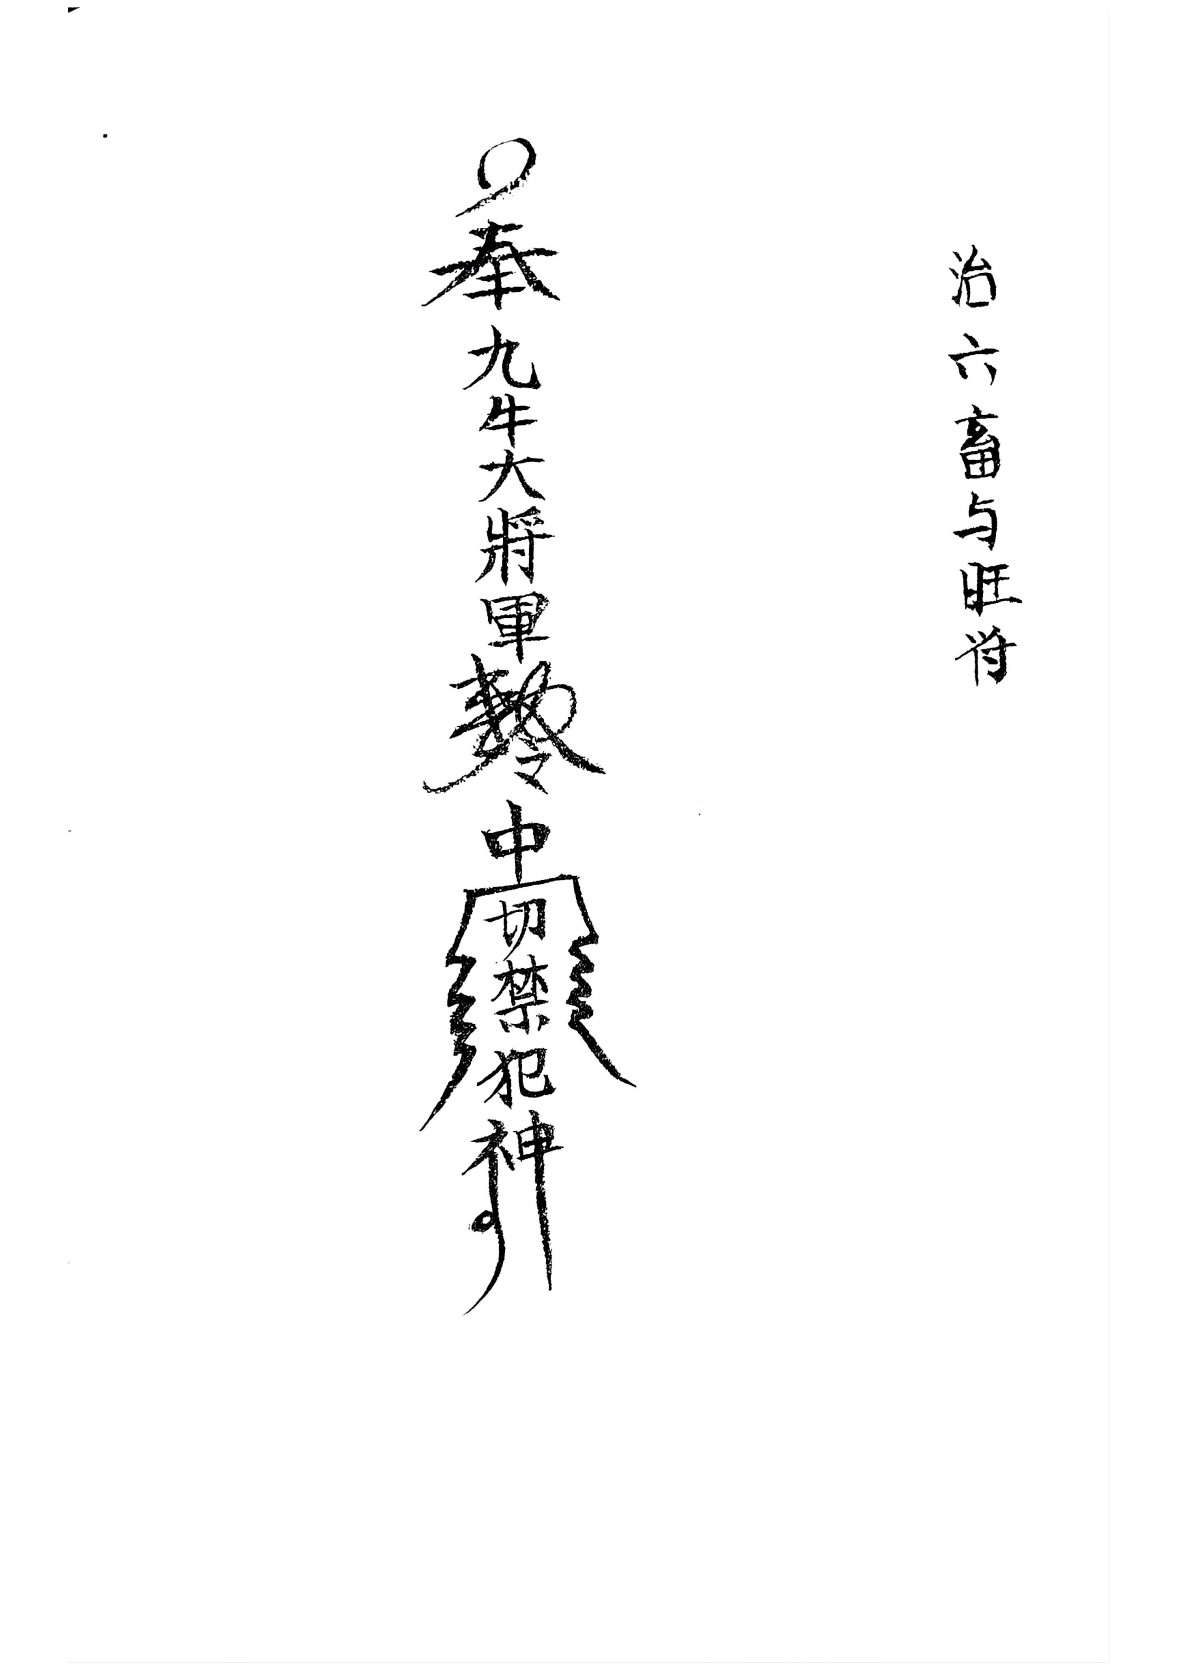 治六畜与旺符
奉九牛大將軍勅令中一切禁犯神